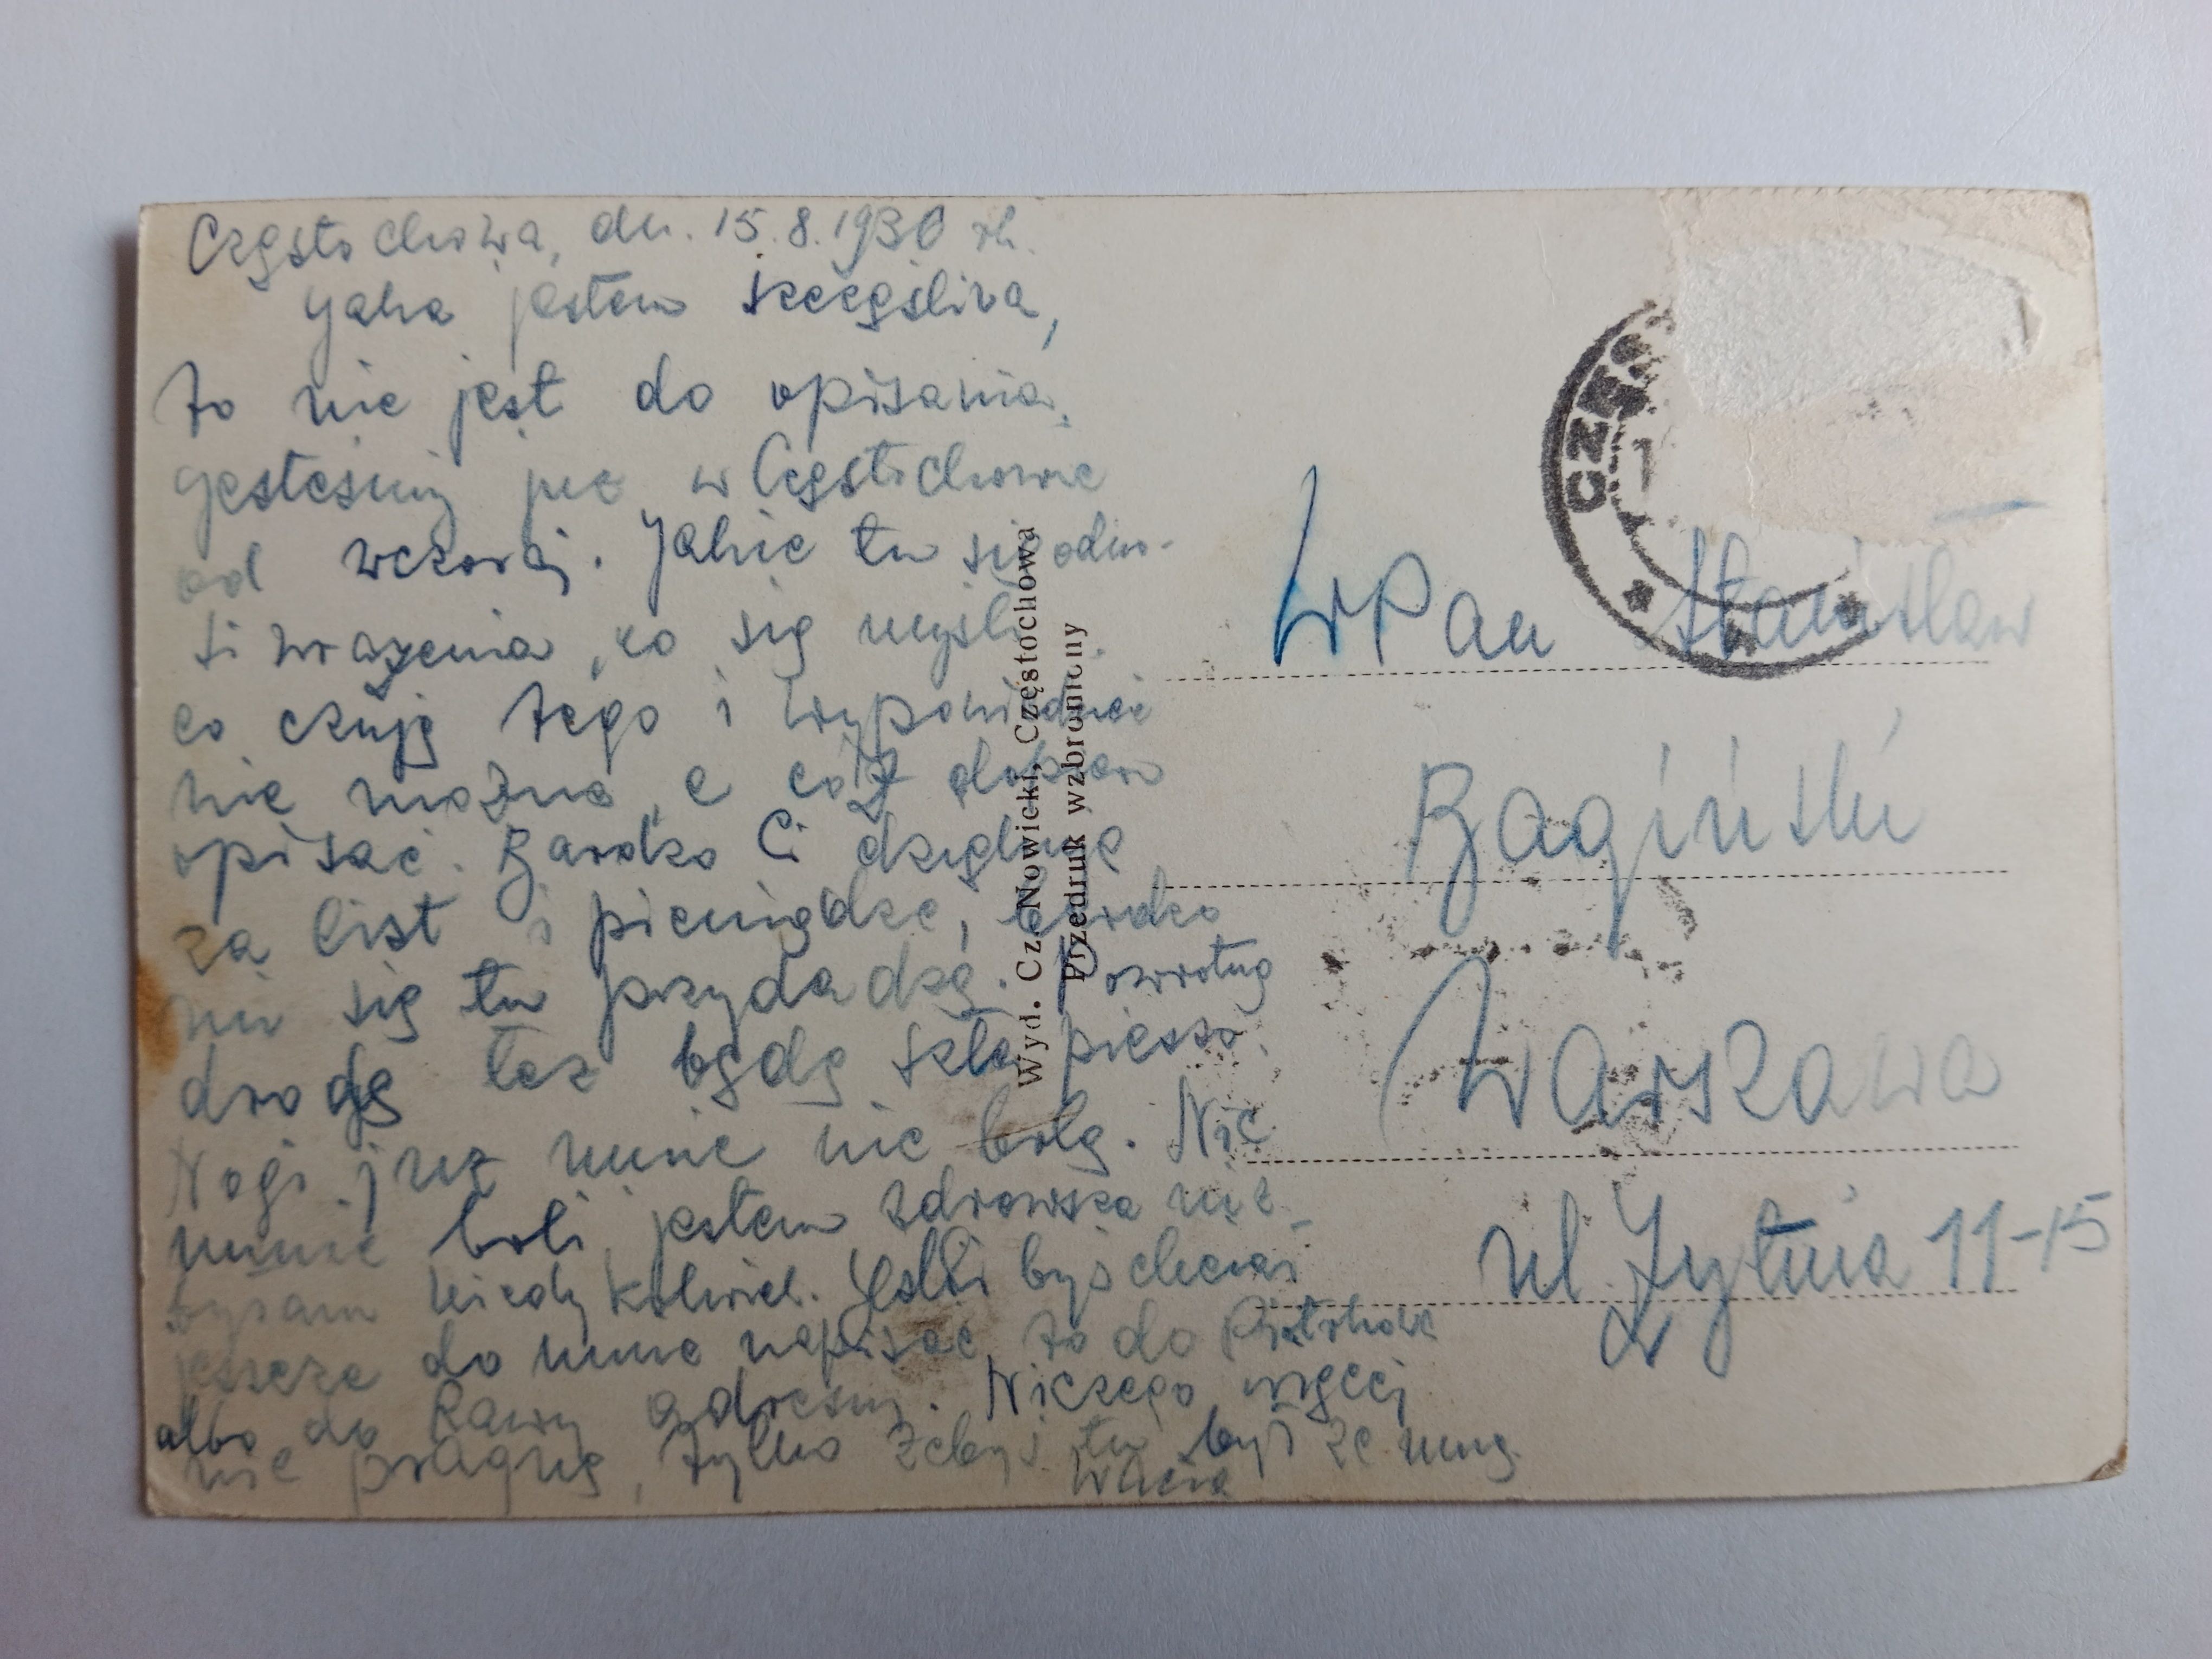 Częstochowa, dn. 15.8.1930 r.
Jaka jestem szczęśliwa,
to nie jest do opisania.
Jesteśmy już w Częstochowie
od wczoraj. Jakie tu się odno-
si wrażenia, co się myśli,
co czuję tego i wypowiedzieć
nie można, a cóż dopiero
opisać. Bardzo Ci dziękuję
za list i pieniądze, bardzo
mi się tu przydadzą. Powrotną
drogę też będę szła pieszo.
Nogi już mnie nie bolą. Nic
mnie boli, jestem zdrowsza niż
kiedykolwiek. Jeśli byś chciał
jeszcze do mnie napisać, to do
albo do Rawy adresuj. Niczego więcej
nie pragnę, tylko żebyś tu był ze mną.
Wacia
Wyd. Cz. Nowicki, Częstochowa
Przedruk wzbroniony
CZĘS
1
WPan Stanisław
Bagiński
Warszawa
ul. Żytnia 11-15